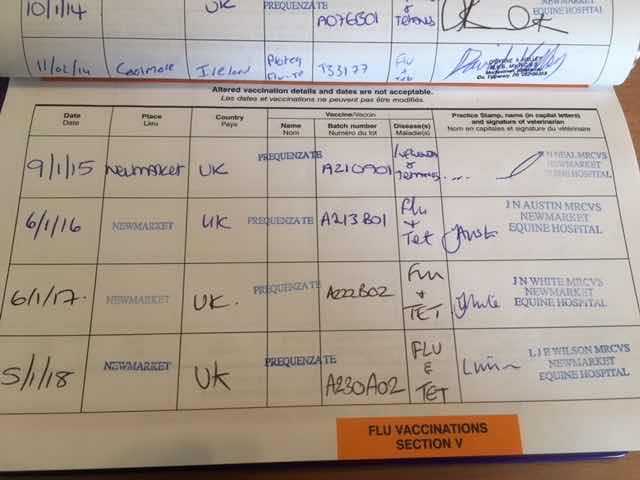 10/1/14 UK PREQUENZATE A076B01 & Tetanus OK NEWMARKET EQUINE HOSPITAL
11/02/14 Coolmore Ireland Proteq Flu-Te J33177 Flu & Tet
Altered vaccination details and dates are not acceptable.
Les dates et vaccinations ne peuvent pas être modifiés.
Date Place Country Vaccine/Vaccin Practice Stamp, name (in capital letters)
Date Lieu Pays Name Batch number Disease(s) and signature of veterinarian
Nom Numéro du lot Maladie(s) Nom en capitales et signature du vétérinaire
9/1/15 Newmarket UK PREQUENZATE A210A01 Influenza & Tetanus J N NEAL MRCVS
NEWMARKET
EQUINE HOSPITAL
6/1/16 NEWMARKET UK PREQUENZATE A213B01 Flu & Tet J N AUSTIN MRCVS
NEWMARKET
EQUINE HOSPITAL
6/1/17. NEWMARKET UK. PREQUENZATE A222B02 Flu & TET J N WHITE MRCVS
NEWMARKET
EQUINE HOSPITAL
5/1/18 NEWMARKET UK PREQUENZATE A230A02 FLU & TET L J E WILSON MRCVS
NEWMARKET
EQUINE HOSPITAL
FLU VACCINATIONS
SECTION V